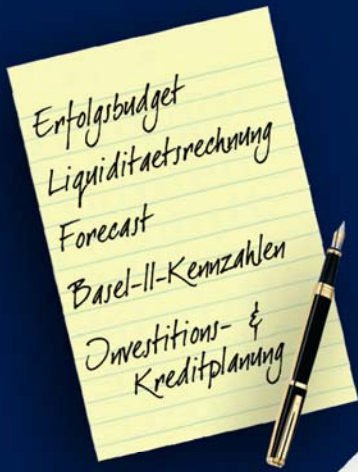 Erfolgsbudget
Liquiditaetsrechnung
Forecast
Basel-II-Kennzahlen
Investitions- &
Kreditplanung